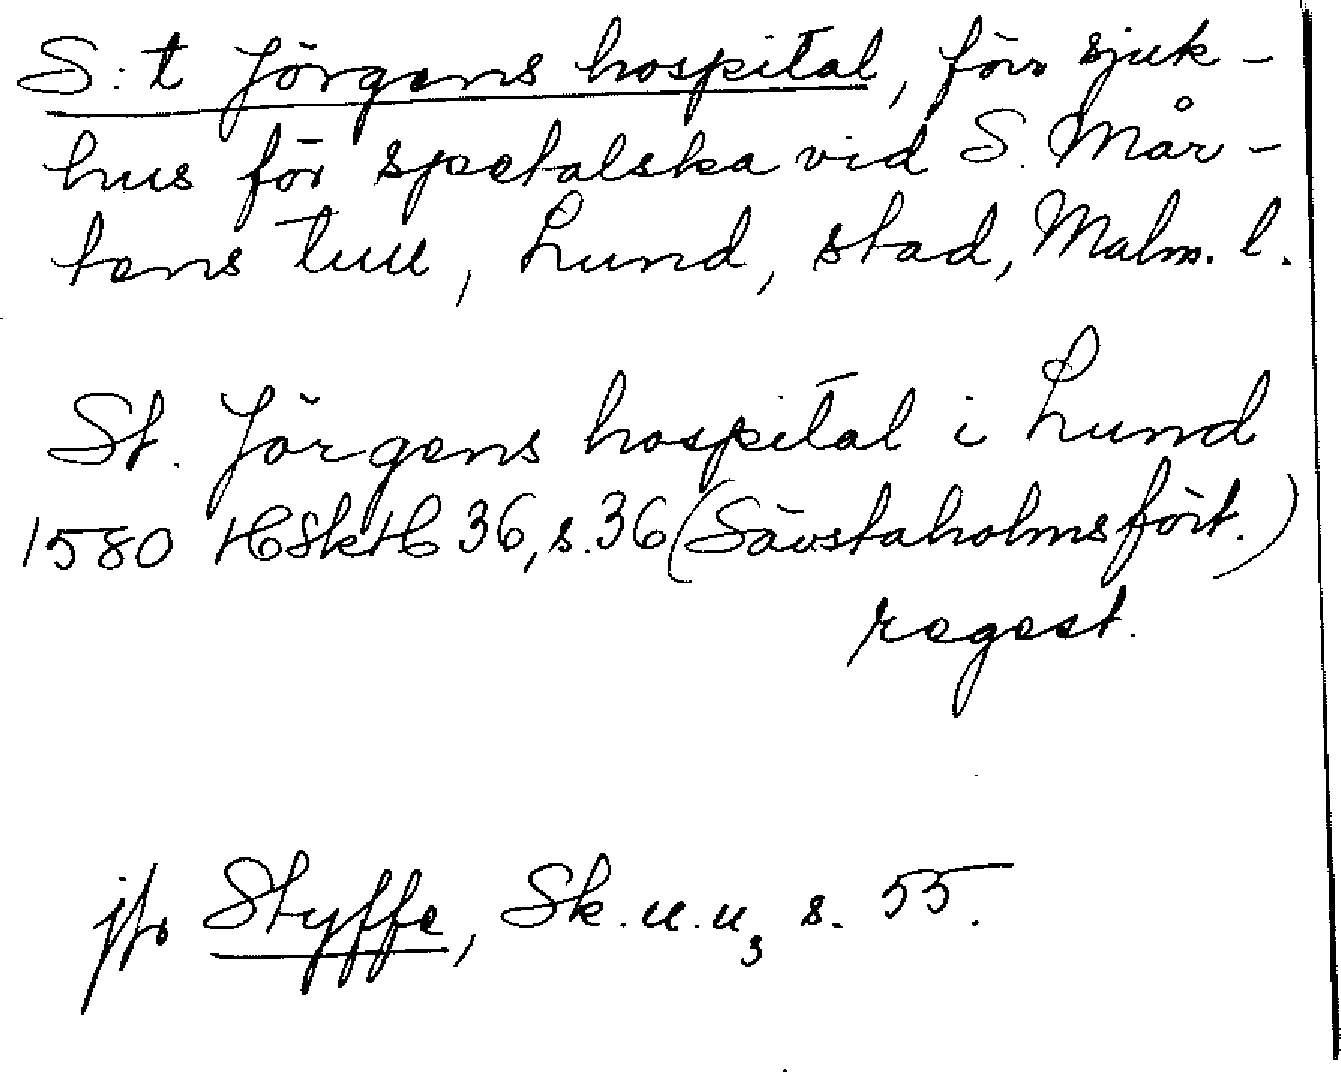 S:t Jörgens hospital, förr sjuk-
hus för spetalska vid S. Mår-
tens tull, Lund, stad, Malm. l.
St. Jörgens hospital i Lund
1580 HSkH 36, s. 36 (Sävstaholmsfört.)
regest.
jfr Styffe, Sk. u. u, s. 55.